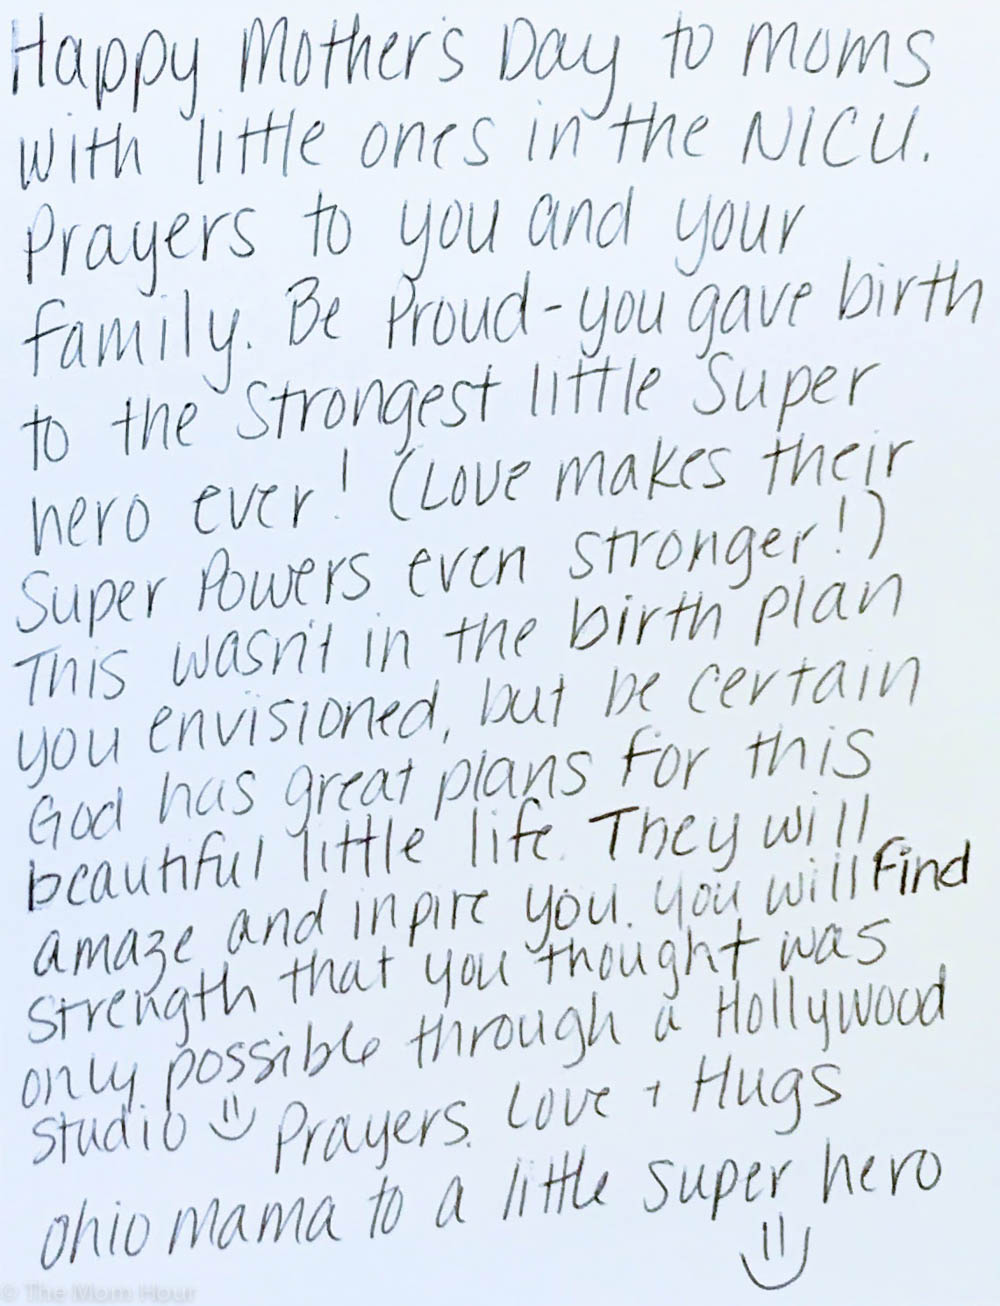 Happy Mother's Day to moms
with little ones in the NICU.
Prayers to you and your
family. Be Proud - you gave birth
to the Strongest little Super
hero ever! (Love makes their
Super Powers even stronger!)
This wasn't in the birth plan
you envisioned, but be certain
God has great plans for this
beautiful little life. They will
amaze and inpire you. You will find
strength that you thought was
only possible through a Hollywood
studio Prayers. Love + Hugs
Ohio mama to a little super hero
© The Mom Hour